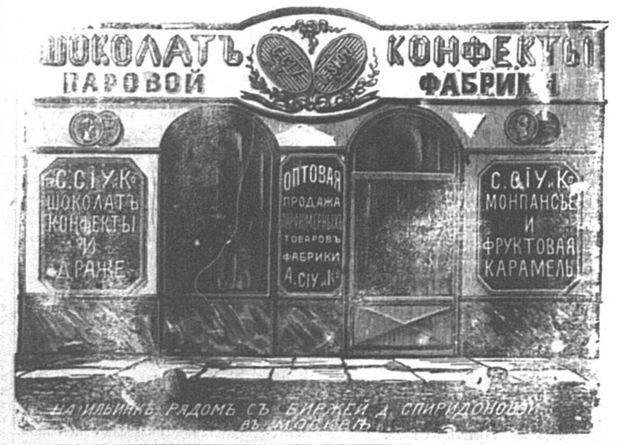 ШОКОЛАТЪ КОНФЕКТЫ
ПАРОВОЙ ФАБРИКИ
С.СІУ и Ко
ШОКОЛАТЪ
КОНФЕКТЫ
И
ДРАЖЕ
ОПТОВАЯ
ПРОДАЖА
ПАРФЮМЕРНЫХЪ
ТОВАРОВЪ
ФАБРИКИ
А.СІУ и Ко
С.СІУ и Ко
МОНПАНСЬЕ
И
ФРУКТОВАЯ
КАРАМЕЛЬ
НА ИЛЬИНКѢ, РЯДОМЪ СЪ БИРЖЕЙ Д. СПИРИДОНОВОЙ
ВЪ МОСКВѢ